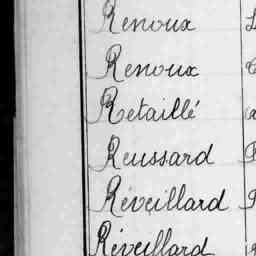 Renoux
Renoux
Retaillé
Reussard
Réveillard
Réveillard